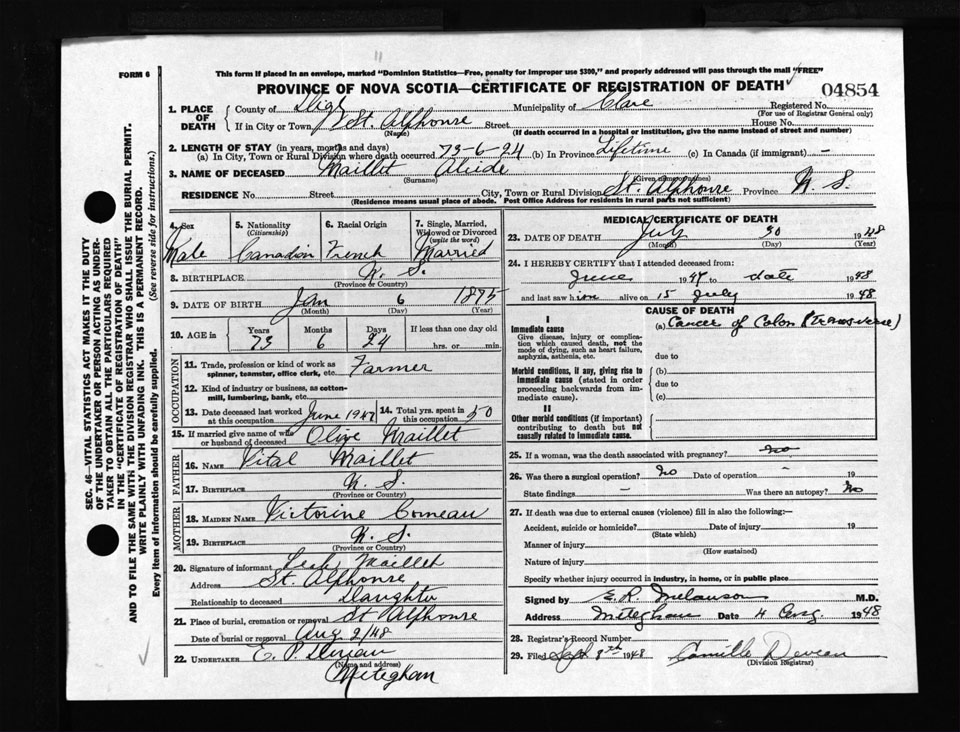 FORM 6
This form if placed in an envelope, marked "Dominion Statistics—Free, penalty for improper use $300," and properly addressed will pass through the mail "FREE"
PROVINCE OF NOVA SCOTIA—CERTIFICATE OF REGISTRATION OF DEATH
04854
1. PLACE OF DEATH { County of Digby Municipality of Clare Registered No.
(For use of Registrar General only)
If in City or Town St. Alphonse Street House No.
(Name) (If death occurred in a hospital or institution, give the name instead of street and number)
2. LENGTH OF STAY (in years, months and days)
(a) In City, Town or Rural Division where death occurred 73-6-24 (b) In Province Lifetime (c) In Canada (if immigrant) –
3. NAME OF DECEASED Maillet Alcide
(Surname) (Given names)
RESIDENCE No. Street City, Town or Rural Division St. Alphonse Province N. S.
(Residence means usual place of abode. Post Office Address for residents in rural parts not sufficient)
4. Sex 5. Nationality (Citizenship) 6. Racial Origin 7. Single, Married, Widowed or Divorced (write the word)
Male Canadian French Married
8. BIRTHPLACE N. S.
(Province or Country)
9. DATE OF BIRTH Jan 6 1875
(Month) (Day) (Year)
10. AGE in { Years Months Days If less than one day old
73 6 24 hrs. or min.
OCCUPATION
11. Trade, profession or kind of work as spinner, teamster, office clerk, etc. Farmer
12. Kind of industry or business, as cotton-mill, lumbering, bank, etc.
13. Date deceased last worked at this occupation June 1947 14. Total yrs. spent in this occupation 50
15. If married give name of wife or husband of deceased Olive Maillet
FATHER
16. NAME Vital Maillet
17. BIRTHPLACE N. S.
(Province or Country)
MOTHER
18. MAIDEN NAME Victorine Comeau
19. BIRTHPLACE N. S.
(Province or Country)
20. Signature of informant Leah Maillet
Address St. Alphonse
Relationship to deceased Daughter
21. Place of burial, cremation or removal St Alphonse
Date of burial or removal Aug 2/48
22. UNDERTAKER E. P.
(Name and address)
Meteghan
MEDICAL CERTIFICATE OF DEATH
23. DATE OF DEATH July 30 1948
(Month) (Day) (Year)
24. I HEREBY CERTIFY that I attended deceased from:
June 1947 to date 1948
and last saw him alive on 15 July 1948
CAUSE OF DEATH
I
Immediate cause (a) Cancer of Colon (Transverse)
Give disease, injury or complication which caused death, not the mode of dying, such as heart failure, asphyxia, asthenia, etc.
due to
Morbid conditions, if any, giving rise to immediate cause (stated in order proceeding backwards from immediate cause).
(b)
due to
(c)
II
Other morbid conditions (if important) contributing to death but not causally related to immediate cause.
25. If a woman, was the death associated with pregnancy? no
26. Was there a surgical operation? no Date of operation – 19
State findings – Was there an autopsy? No
27. If death was due to external causes (violence) fill in also the following:—
Accident, suicide or homicide? Date of injury 19
(State which)
Manner of injury
(How sustained)
Nature of injury
Specify whether injury occurred in industry, in home, or in public place
Signed by E. R. Melanson M.D.
Address Meteghan Date 4 Aug. 1948
28. Registrar's Record Number
29. Filed Sept 8th 1948 Camille Deveau
(Division Registrar)
SEC. 46—VITAL STATISTICS ACT MAKES IT THE DUTY
OF THE UNDERTAKER OR PERSON ACTING AS UNDER-
TAKER TO OBTAIN ALL THE PARTICULARS REQUIRED
IN THE "CERTIFICATE OF REGISTRATION OF DEATH"
AND TO FILE THE SAME WITH THE DIVISION REGISTRAR WHO SHALL ISSUE THE BURIAL PERMIT.
WRITE PLAINLY WITH UNFADING INK. THIS IS A PERMANENT RECORD.
Every item of information should be carefully supplied. (See reverse side for instructions.)